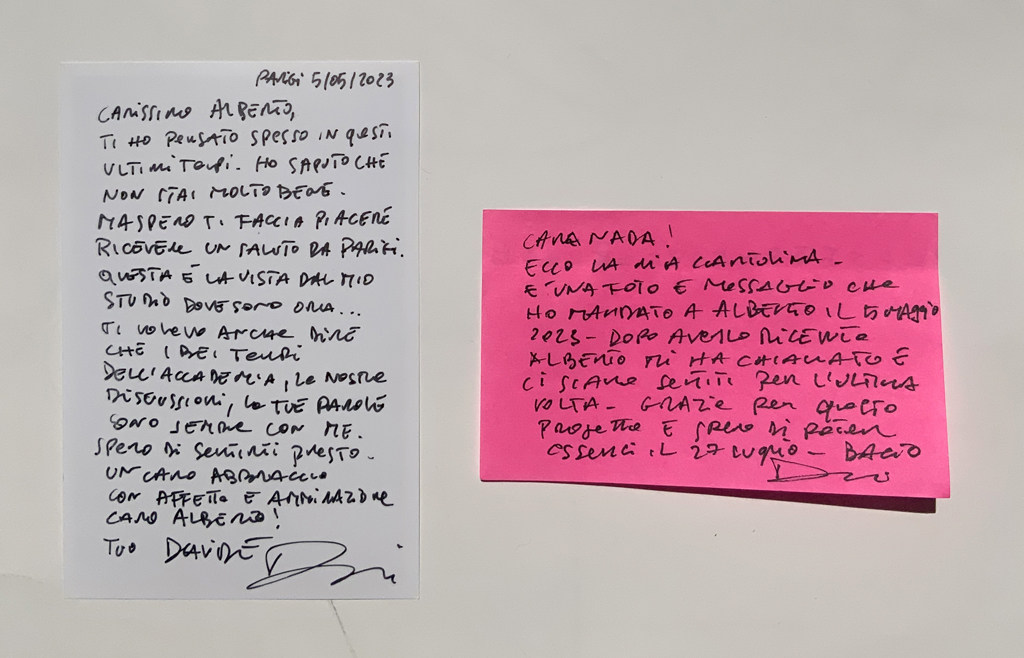 PARIGI 5/05/2023
CARISSIMO ALBERTO,
TI HO PENSATO SPESSO IN QUESTI
ULTIMI TEMPI. HO SAPUTO CHE
NON STAI MOLTO BENE.
MA SPERO TI FACCIA PIACERE
RICEVERE UN SALUTO DA PARIGI.
QUESTA È LA VISTA DAL MIO
STUDIO DOVE SONO ORA...
TI VOLEVO ANCHE DIRE
CHE I BEI TEMPI
DELL'ACCADEMIA, LE NOSTRE
DISCUSSIONI, LE TUE PAROLE
SONO SEMPRE CON ME.
SPERO DI SENTIRTI PRESTO.
UN CARO ABBRACCIO
CON AFFETTO E AMMIRAZIONE
CARO ALBERTO!
TUO DAVIDE
CARA NADA!
ECCO LA MIA CARTOLINA -
E' UNA FOTO E MESSAGGIO CHE
HO MANDATO A ALBERTO IL 5 MAGGIO
2023 - DOPO AVERLO RICEVUTO
ALBERTO MI HA CHIAMATO E
CI SIAMO SENTITI PER L'ULTIMA
VOLTA - GRAZIE PER QUESTO
PROGETTO E SPERO DI POTER
ESSERCI IL 27 LUGLIO - BACIO